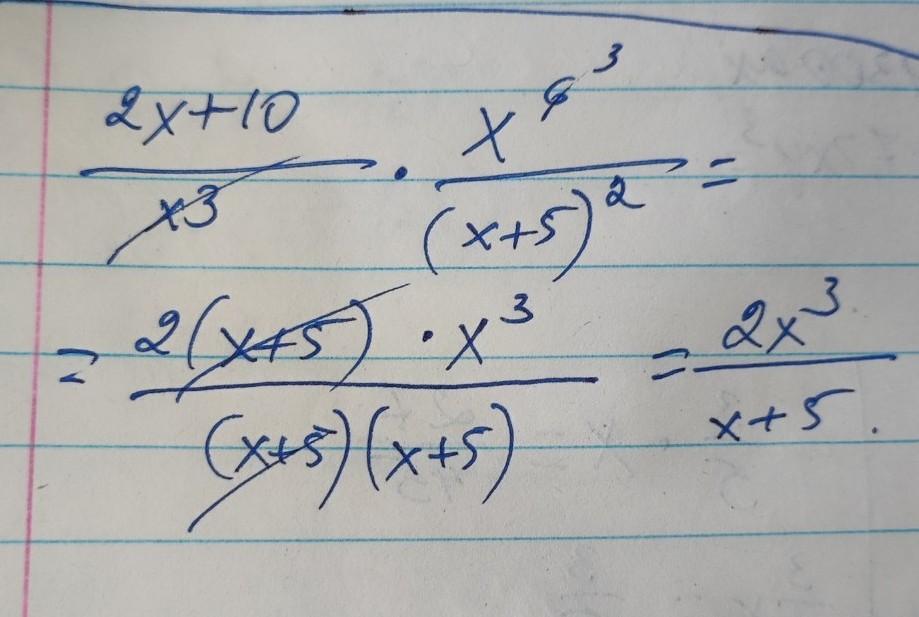 (2x+10)/(x3) · (x^6 ^3)/((x+5)^2) =
= (2(x+5) · x^3)/((x+5)(x+5)) = (2x^3)/(x+5).